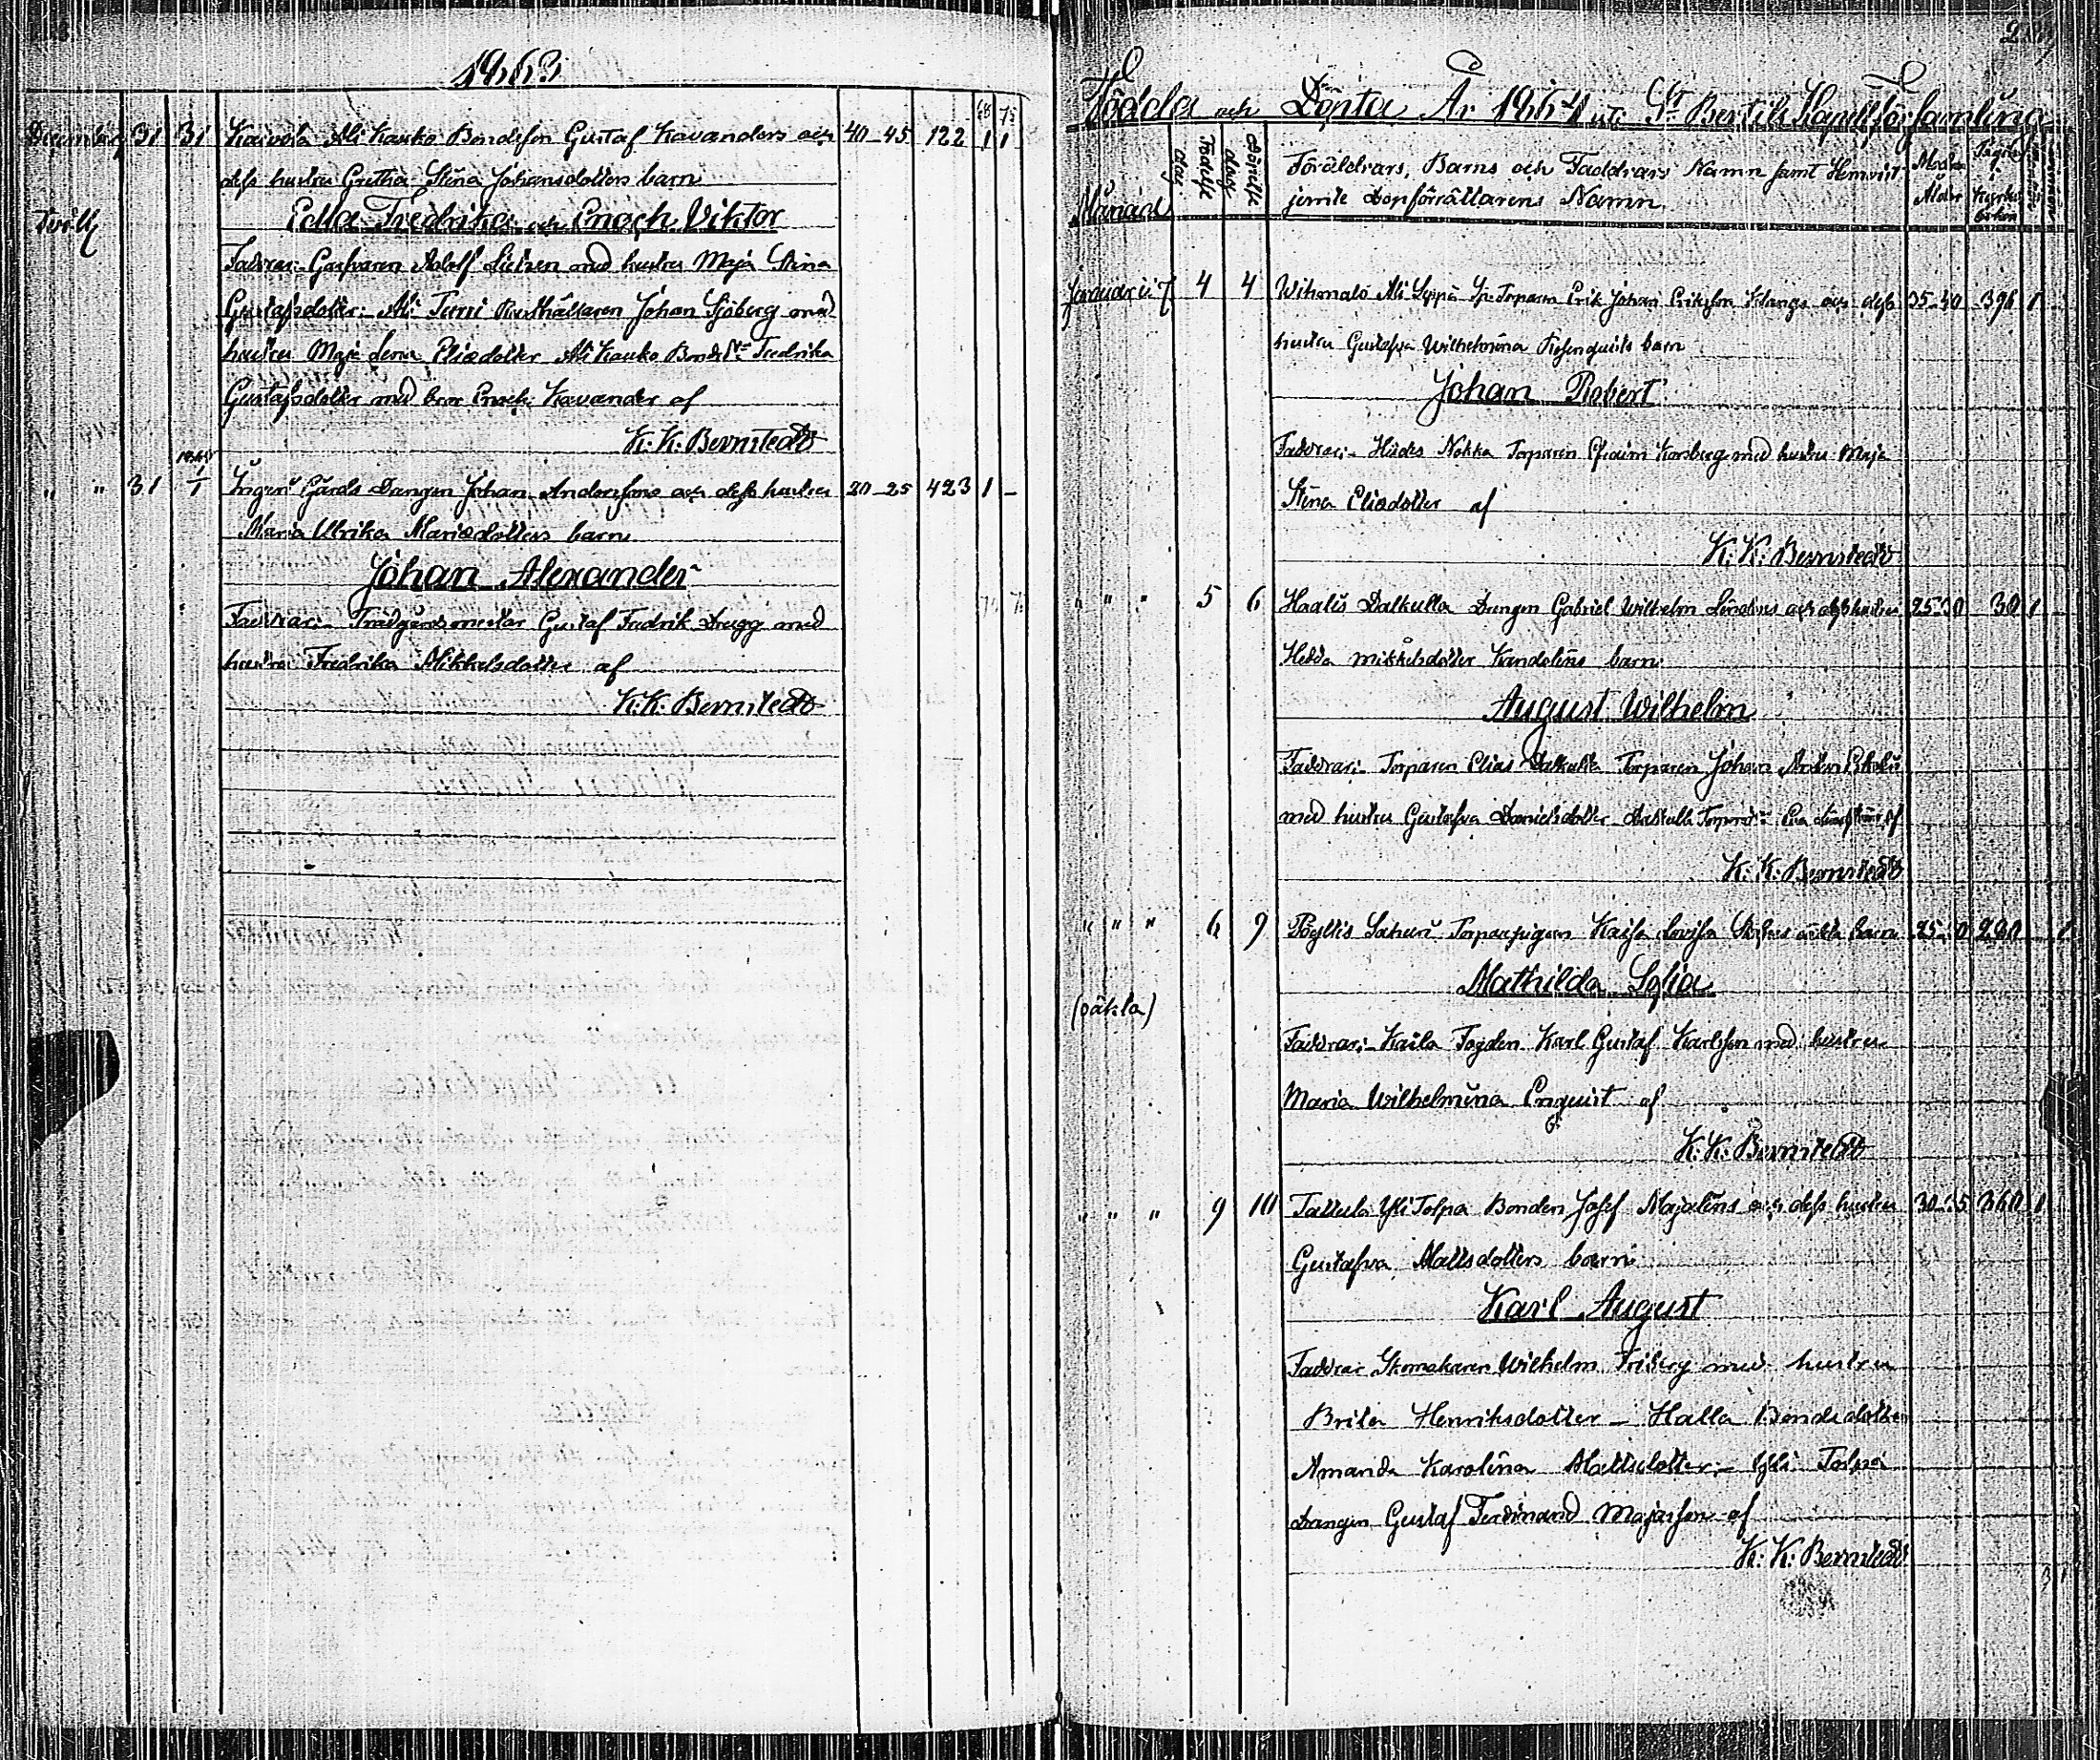 1863
68 75
December 31 31 Kaivola Ali Kauko Bondeson Gustaf Kavanders och 40-45 122 1 1
dess hustru Gretha Stina Johansdotters barn
Tvill Edla Fredrika och Enoch Viktor
Faddrar: Garfvaren Adolf med hustru Maja Stina
Gustafsdotter. Ali Turri Rusthållaren Johan Sjöberg med
hustru Maja Lena Eliædotter Ali Kauko Fredrika
Gustafsdotter med bror Enoch Kavander af
K: K: Bernstedt
" " 31 1/1 Gårds Drängen Johan Anderssons och dess hustru 20-25 423 1 -
Maria Ulrika Mariædotters barn
Johan Alexander
Faddrar: Trädgårdsmästar Gustaf Fredrik Drugg med
hustru Fredrika Mikkelsdotter af
K: K: Bernstedt
Födda och Döpta År 1864 uti St Bertils Kapellförsamling
Månad Födelse dag Döpelse dag Föräldrars, Barns och Faddrars Namn samt Hemvist
jemte Dopförrättarens Namn. Moders Ålder Pagina i Kyrkoboken
Januarii 4 4 Wihmalo Ali Seppä Torparen Erik Johan Ericksson och dess 35-40 396 1
hustru Gustafva Wilhelmina Rosenquists barn
Johan Robert
Faddrar: Nokka Torparen Efraim Korsberg med hustru Maja
Stina Eliædotter af
K: K: Bernstedt
" " " 5 6 Haalis Dalkulla Drängen Gabriel Wilhelm Lindens och dess hustru 25-30 30 1
Hedda Mikkelsdotter Kandolins barn
August Wilhelm
Faddrar: Torparen Elias Dalkulla Torparen Johan
med hustru Gustafva Danielsdotter Dalkulla Eva af
K: K: Bernstedt
" " " 6 9 Pöyllis Torparpigan Kaisa Lovisa oäkta barn 25-30 290 1
Mathilda Sofia
(oäkta)
Faddrar: Kaila Fogden Karl Gustaf Karlsson med hustru
Maria Wilhelmina Enquist af
K: K: Bernstedt
" " " 9 10 Tattula Yli Tolpa Bonden Josef Majalins och dess hustru 30-35 360 1
Gustafva Mattsdotters barn
Karl August
Faddrar Skomakaren Wilhelm Friberg med hustru
Brita Henriksdotter - Halla Bondedotter
Amanda Karolina Mattsdotter - Yli Tolpa
Drängen Gustaf Ferdinand Majasson af
K: K: Bernstedt